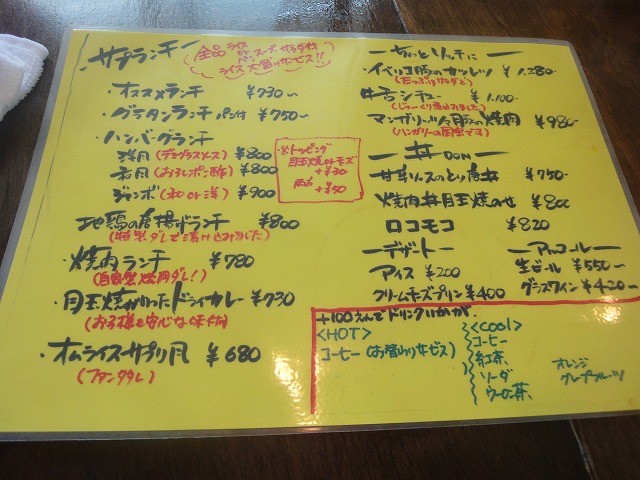 サプリランチ
全品 ライス or パン スープ・サラダ付
ライス大盛りサービス!!
・オススメランチ ¥730〜
・グラタンランチ パン付 ¥750〜
・ハンバーグランチ
洋月(デミグラスソース) ¥800
和月(おろしポン酢) ¥800
ジャンボ(和 or 洋) ¥900
※トッピング
目玉焼 or チーズ
+¥30
両方
+¥50
地鶏の唐揚げランチ ¥800
(特製ダレで漬け込みました)
・焼肉ランチ ¥780
(自家製焼肉ダレ!)
・目玉焼がのったドライカレー ¥730
(お子様も安心な味付)
・オムライスサプリ風 ¥680
ちょっとリッチに
・イベリコ豚のカツレツ ¥1,280-
(たっぷりサラダと)
牛舌シチュー ¥1,100-
(じっくり煮込みました)
マンガリッツァ豚の焼肉 ¥980-
(ハンガリーの国宝です)
丼 DON
¥750-
焼肉丼目玉焼のせ ¥800
ロコモコ ¥820
デザート
アイス ¥200
クリームチーズプリン ¥400
アルコール
生ビール ¥550〜
グラスワイン ¥420〜
+100えんでドリンクいかが
<HOT>
コーヒー(お替わりサービス)
<COOL>
コーヒー
紅茶、
ソーダ
ウーロン茶、
オレンジ
グレープフルーツ